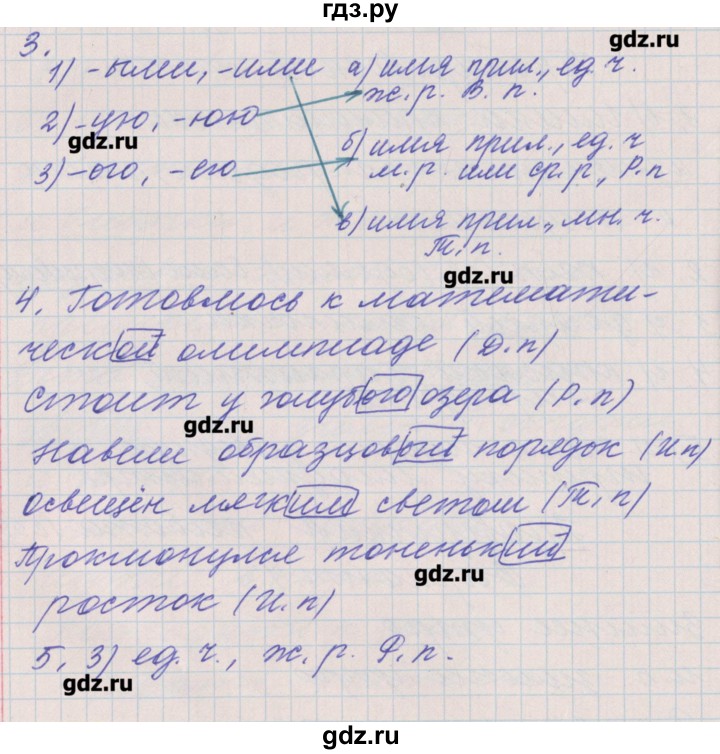 гдз.ру
3.
1) -ыми, -ими а) имя прил., ед. ч.
ж. р. В. п.
2) -ую, -юю
б) имя прил., ед. ч
3) -ого, -его м. р. или ср. р., Р. п
в) имя прил., мн. ч.
Т. п.
4. Готовлюсь к математи-
ческой олимпиаде (Д. п)
Стоит у голубого озера (Р. п)
Навели образцовый порядок (И. п)
освещён мягким светом (Т. п)
Проклюнулся тоненький
росток (И. п)
5. 3) ед. ч., ж. р.
gdz.ru
gdz.ru
gdz.ru
gdz.ru
gdz.ru
gdz.ru
gdz.ru
gdz.ru